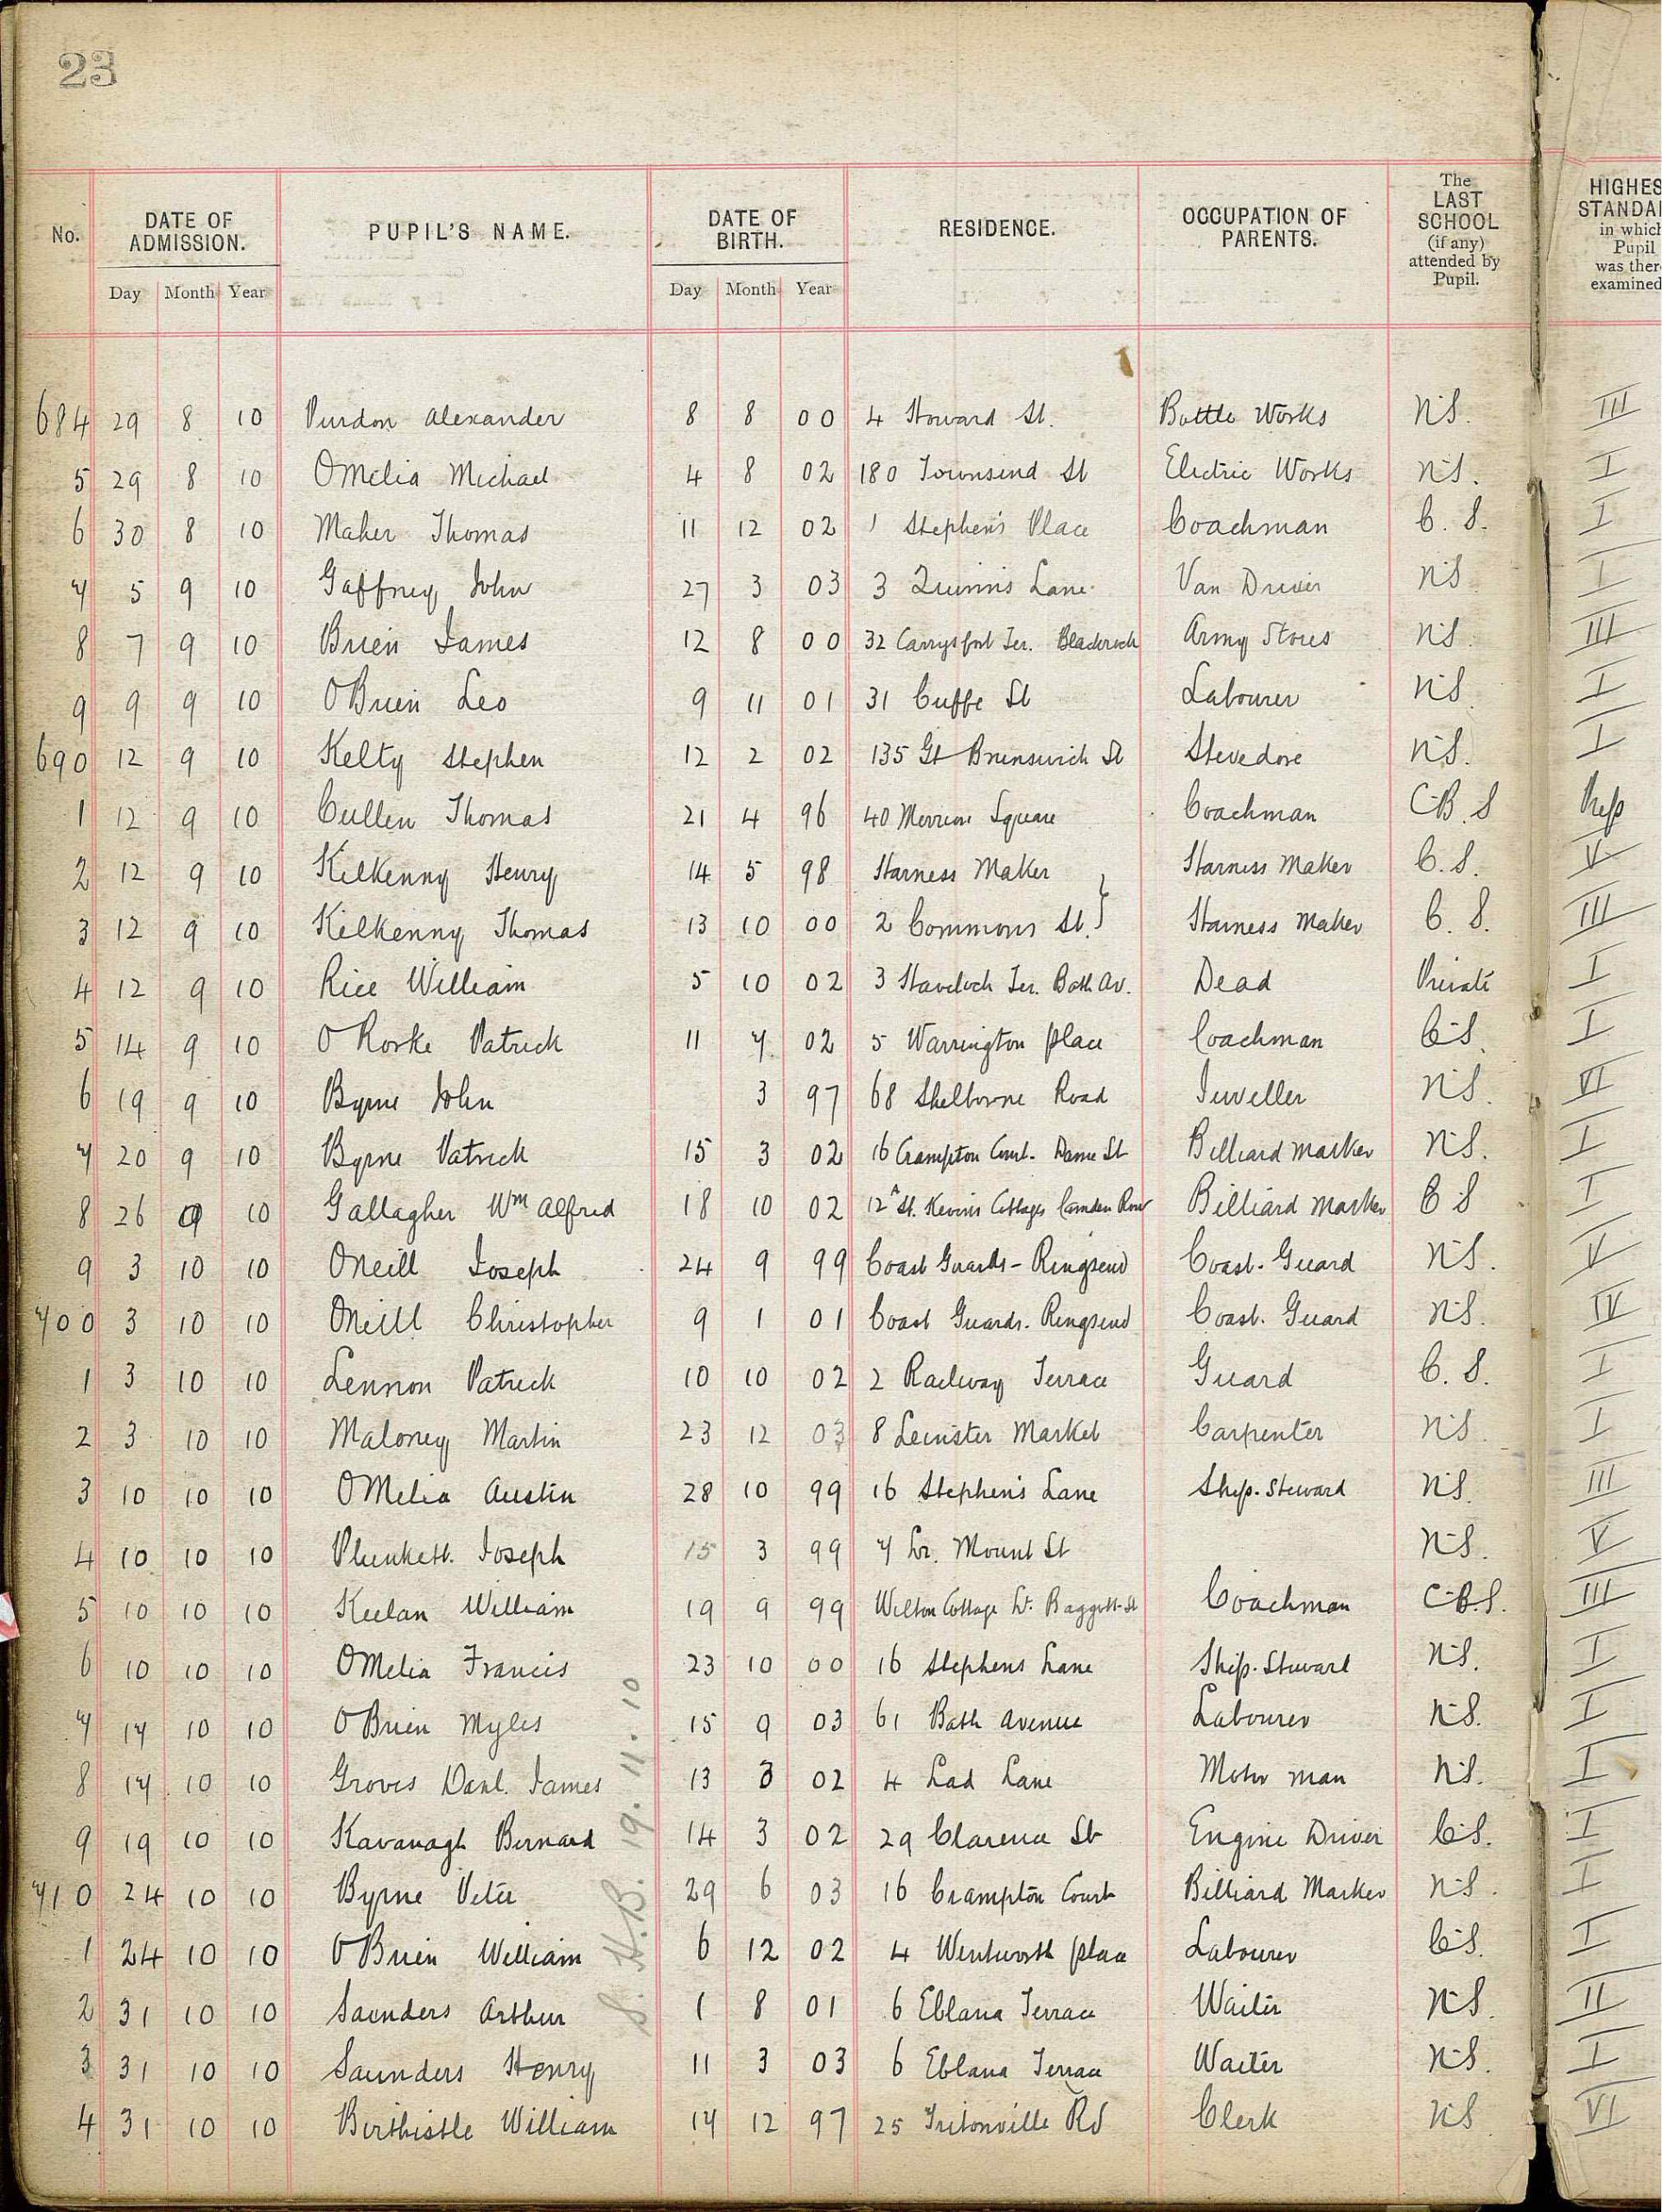 23
No. DATE OF ADMISSION. PUPIL'S NAME. DATE OF BIRTH. RESIDENCE. OCCUPATION OF PARENTS. The LAST SCHOOL (if any) attended by Pupil. HIGHES STANDAR in which Pupil was ther examined
Day Month Year Day Month Year
684 29 8 10 Purdon Alexander 8 8 00 4 Howard St. Bottle Works N.S. III
5 29 8 10 OMelia Michael 4 8 02 180 Townsend St Electric Works N.S. I
6 30 8 10 Maher Thomas 11 12 02 1 Stephen's Place Coachman C. S. I
7 5 9 10 Gaffney John 27 3 03 3 Quinn's Lane Van Driver N.S I
8 7 9 10 Brien James 12 8 00 32 Carrysfort Ter. Blackrock Army Stores N.S. III
9 9 9 10 OBrien Leo 9 11 01 31 Cuffe St Labourer N.S I
690 12 9 10 Kelty Stephen 12 2 02 135 Gt Brunswick St Stevedore N.S. I
1 12 9 10 Cullen Thomas 21 4 96 40 Merrion Square Coachman C.B.S
2 12 9 10 Kilkenny Henry 14 5 98 Harness Maker Harness Maker C.S. V
3 12 9 10 Kilkenny Thomas 13 10 00 2 Commons St. Harness Maker C. S. III
4 12 9 10 Rice William 5 10 02 3 Havelock Ter. Bath Av. Dead Private I
5 14 9 10 O Rorke Patrick 11 7 02 5 Warrington place Coachman C.S. I
6 19 9 10 Byrne John 3 97 68 Shelborne Road Jeweller N.S. VI
7 20 9 10 Byrne Patrick 15 3 02 16 Crampton Court. Dame St Billiard Marker N.S. I
8 26 9 10 Gallagher Wm Alfred 18 10 02 12A St. Kevin's Cottages Camden Row Billiard Marker C S I
9 3 10 10 ONeill Joseph 24 9 99 Coast Guards - Ringsend Coast. Guard N.S. V
700 3 10 10 ONeill Christopher 9 1 01 Coast Guards. Ringsend Coast. Guard N.S. IV
1 3 10 10 Lennon Patrick 10 10 02 2 Railway Terrace Guard C. S. I
2 3 10 10 Maloney Martin 23 12 03 8 Leinster Market Carpenter N.S I
3 10 10 10 OMelia Austin 28 10 99 16 Stephen's Lane Ship. Steward N.S. III
4 10 10 10 Plunkett. Joseph 15 3 99 7 Lr. Mount St N.S. V
5 10 10 10 Keelan William 19 9 99 Wilton Cottage Lr. Baggott St Coachman C.B.S. III
6 10 10 10 OMelia Francis 23 10 00 16 Stephens Lane Ship. Steward N.S. I
7 17 10 10 O Brien Myles 15 9 03 61 Bath Avenue Labourer N.S. I
8 17 10 10 Groves Danl. James 13 3 02 4 Lad Lane Motor man N.S. I
9 19 10 10 Kavanagh Bernard 14 3 02 29 Clarence St Engine Driver C.S. I
710 24 10 10 Byrne Peter 29 6 03 16 Crampton Court Billiard Marker N.S. I
1 24 10 10 O Brien William 6 12 02 4 Wentworth place Labourer C.S. I
2 31 10 10 Saunders Arthur 1 8 01 6 Eblana Terrace Waiter N.S. II
3 31 10 10 Saunders Henry 11 3 03 6 Eblana Terrace Waiter N.S. I
4 31 10 10 Birthistle William 17 12 97 25 Tritonville Rd Clerk N.S VI
S. H.B. 19. 11. 10